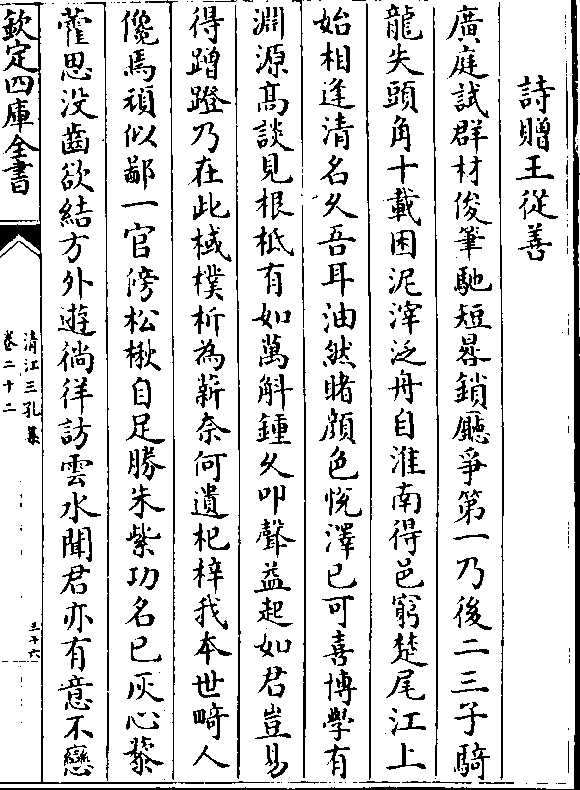 詩贈王從善
廣庭試群材俊筆馳短晷鎖廳爭第一乃後二三子騎
龍失頭角十載困泥滓泛舟自淮南得邑窮楚尾江上
始相逢清名久吾耳油然睹顔色悅澤已可喜博學有
淵源髙談見根柢有如萬斛鍾久叩聲益起如君豈易
得蹭蹬乃在此棫樸析為薪奈何遺杞梓我本世畸人
儳焉頑似鄙一官傍松楸自足勝朱紫功名已灰心藜
藿思没齒欲結方外遊徜徉訪雲水聞君亦有意不戀
欽定四庫全書
清江三孔集
卷二十二
三十六